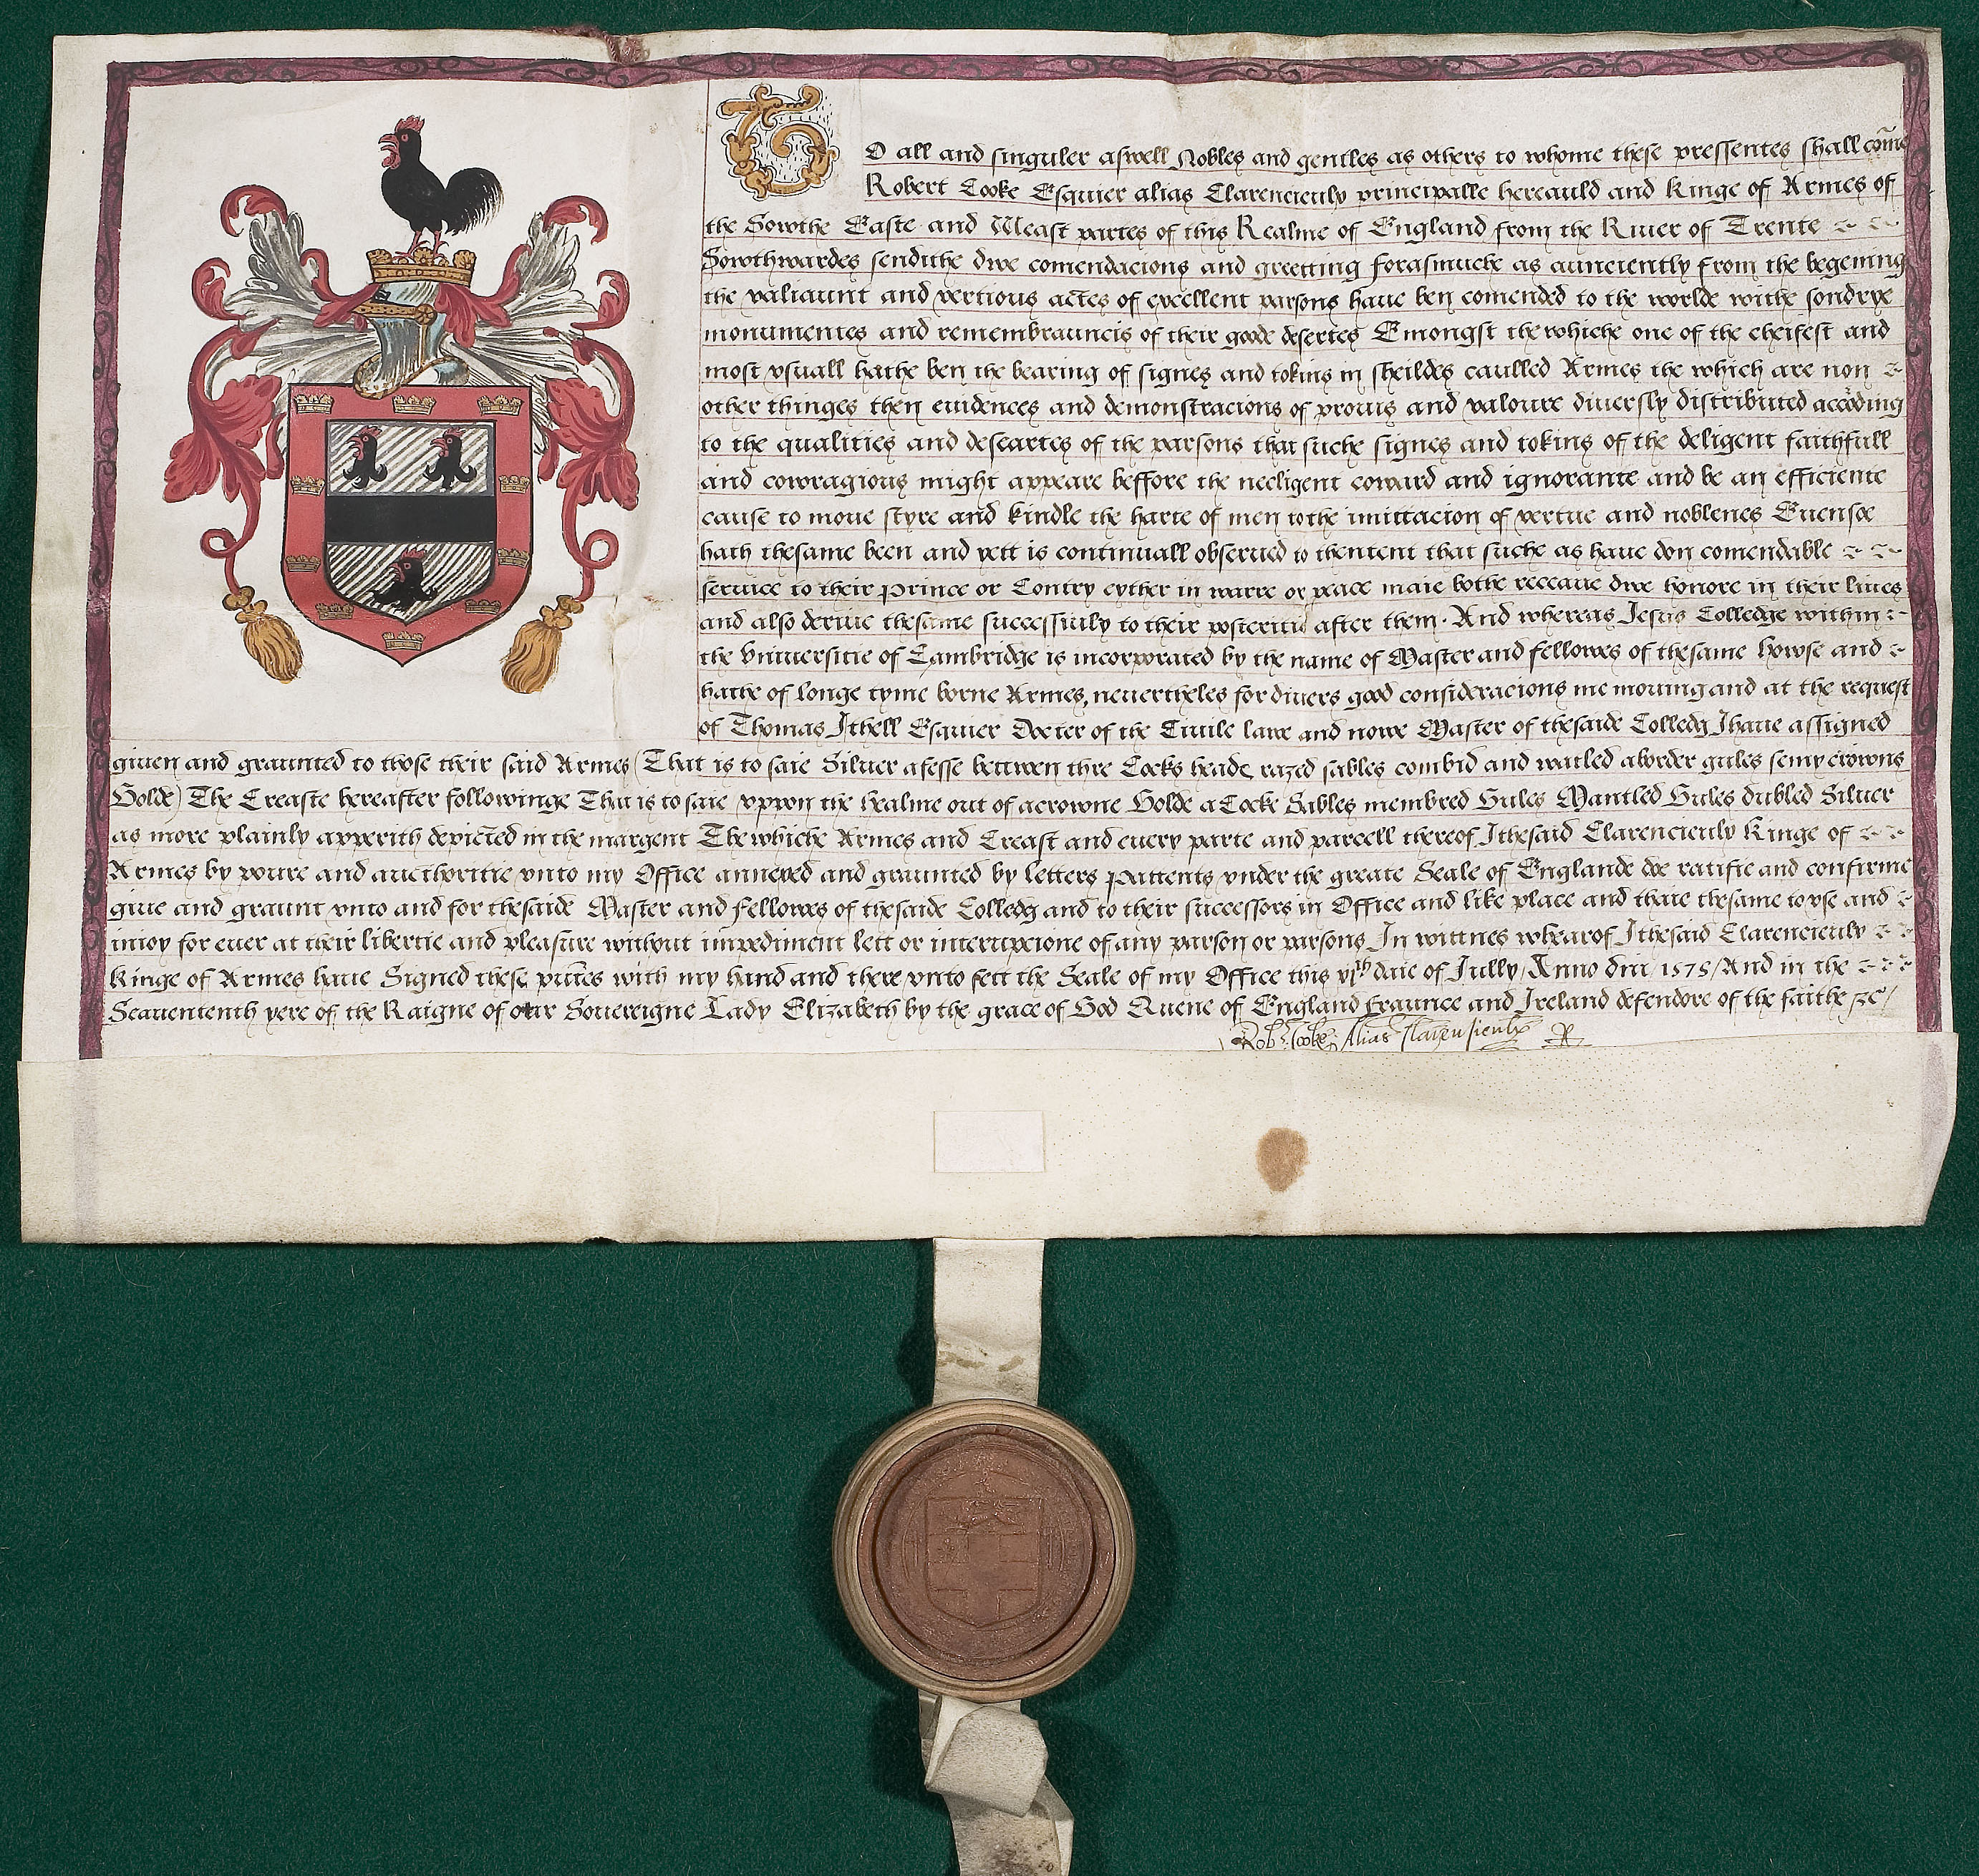 TO all and singuler aswell Nobles and gentles as others to whome these pressentes shall com̄e
Robert Cooke Esquier alias Clarencieulx principalle hereauld and Kinge of Armes of
the Sowthe Easte and Weast partes of this Realme of England from the River of Trente
Sowthwardes sendithe dwe comendacions and greetting forasmuche as aunciently from the begening
the valiaunt and vertious actes of excellent parsons have ben comended to the worlde withe sondrye
monumentes and remembrauncis of their goode desertes Emongst the whiche one of the cheifest and
most vsuall hathe ben the bearing of signes and tokins in sheildes caulled Armes the which are non
other thinges then euidences and demonstracions of prowis and valoure diuersly distributed according
to the qualities and deseartes of the parsons that suche signes and tokins of the deligent faithfull
and cowragious might appeare beffore the necligent coward and ignorante and be an efficiente
cause to moue styre and kindle the harte of men to the imittacion of vertue and noblenes Euensoe
hath thesame been and yett is continuall obserued to thentent that suche as haue don comendable
seruice to their prince or Contry eyther in warre or peace maie bothe receaue dwe honore in their liues
and also deriue thesame successiuly to their posteritie after them. And whereas Jesus Colledge within
the Vniuersitie of Cambridge is incorporated by the name of Master and fellowes of thesame howse and
hathe of longe tyme borne Armes, neuertheles for diuers good consideracions me mouing and at the request
of Thomas Ithell Esquier Docter of the Ciuile lawe and nowe Master of thesaide Colledg I haue assigned
giuen and graunted to those their said Armes (That is to saie Siluer a fesse bettwen thre Cocks heade razed sables combid and watled a border gules semy crowns
Golde) The Creaste hereafter followinge That is to saie vppon the healme out of a crowne Golde a Cocke Sables membred Gules Mantled Gules dubled Siluer
as more plainly apperith depicted in the margent The whiche Armes and Creast and euery parte and parcell thereof I thesaid Clarencieulx Kinge of
Armes by powre and aucthoritie vnto my Office annexed and graunted by letters pattents vnder the greate Seale of Englande doe ratifie and confirme
giue and graunt vnto and for thesaide Master and fellowes of thesaide Colledg and to their successors in Office and like place and thaie thesame to vse and
inioy for euer at their libertie and pleasure without impediment lett or interrupcione of any parson or parsons In wittnes whearof I thesaid Clarencieulx
Kinge of Armes haue Signed these pñtes with my hand and there vnto sett the Seale of my Office this daie of Jully Anno dni 1575 And in the
Seauententh yere of the Raigne of our Souereigne Lady Elizabeth by the grace of God Quene of England fraunce and Ireland defendore of the faithe &c /
Rob. Cooke Alias Clarensieulx R